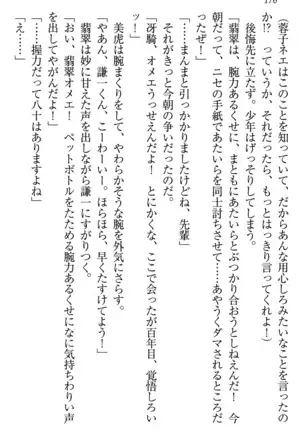 176
（蓉子ネエはこのことを知っていて、だからあんな用心しろみたいなことを言ったの
か？ っていうか、それだったら、もっとはっきり言ってくれよ！）
後悔先に立たず。少年はげっそりしてしまう。
「翡翠は、腕力あるくせに、まともにあたいらとぶつかり合おうとしねえんだ！ 今
朝だって、ニセの手紙であたいらを同士討ちさせて……あやうくダマされるところだ
ったぜ！」
「……まんまと引っかかりましたけどね、先輩」
それがきっと今朝の争いだったのだ。
「冴騎、オメエうっせえんだよ！ とにかくな、ここで会ったが百年目、覚悟しろい
っ！」
美虎は腕まくりをして、やわらかそうな腕を外気にさらす。
「やあん、謙一くん、こーわーいー。ほらほら、早くたすけてよう」
翡翠は妙に甘えた声を出しながら謙一にすがりつく。
「おい、翡翠オメエ！ ペットボトルをたためる腕力あるくせになに気持ちわりい声
出してやがんだ！」
「……握力だって八十はありますよね」
「え……」